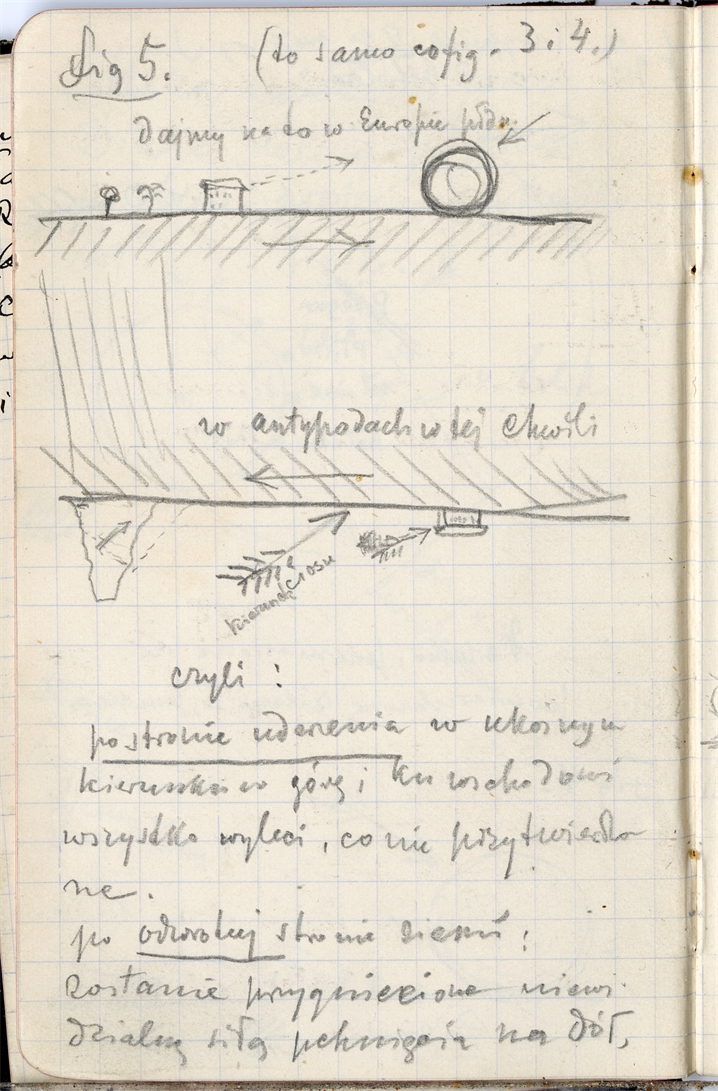 fig 5. (to samo co fig. 3 i 4.)
Dajmy na to w Europie płdn.
w antypodach w tej chwili
kierunek ciosu
czyli :
po stronie uderzenia w ukośnym
kierunku w górę i ku wschodowi
wszystko wyleci, co nie przytwierdzo
ne.
po odwrotnej stronie ziemi:
zostanie przygniecione niewi
dzialną siłą pchnięcia na dół,